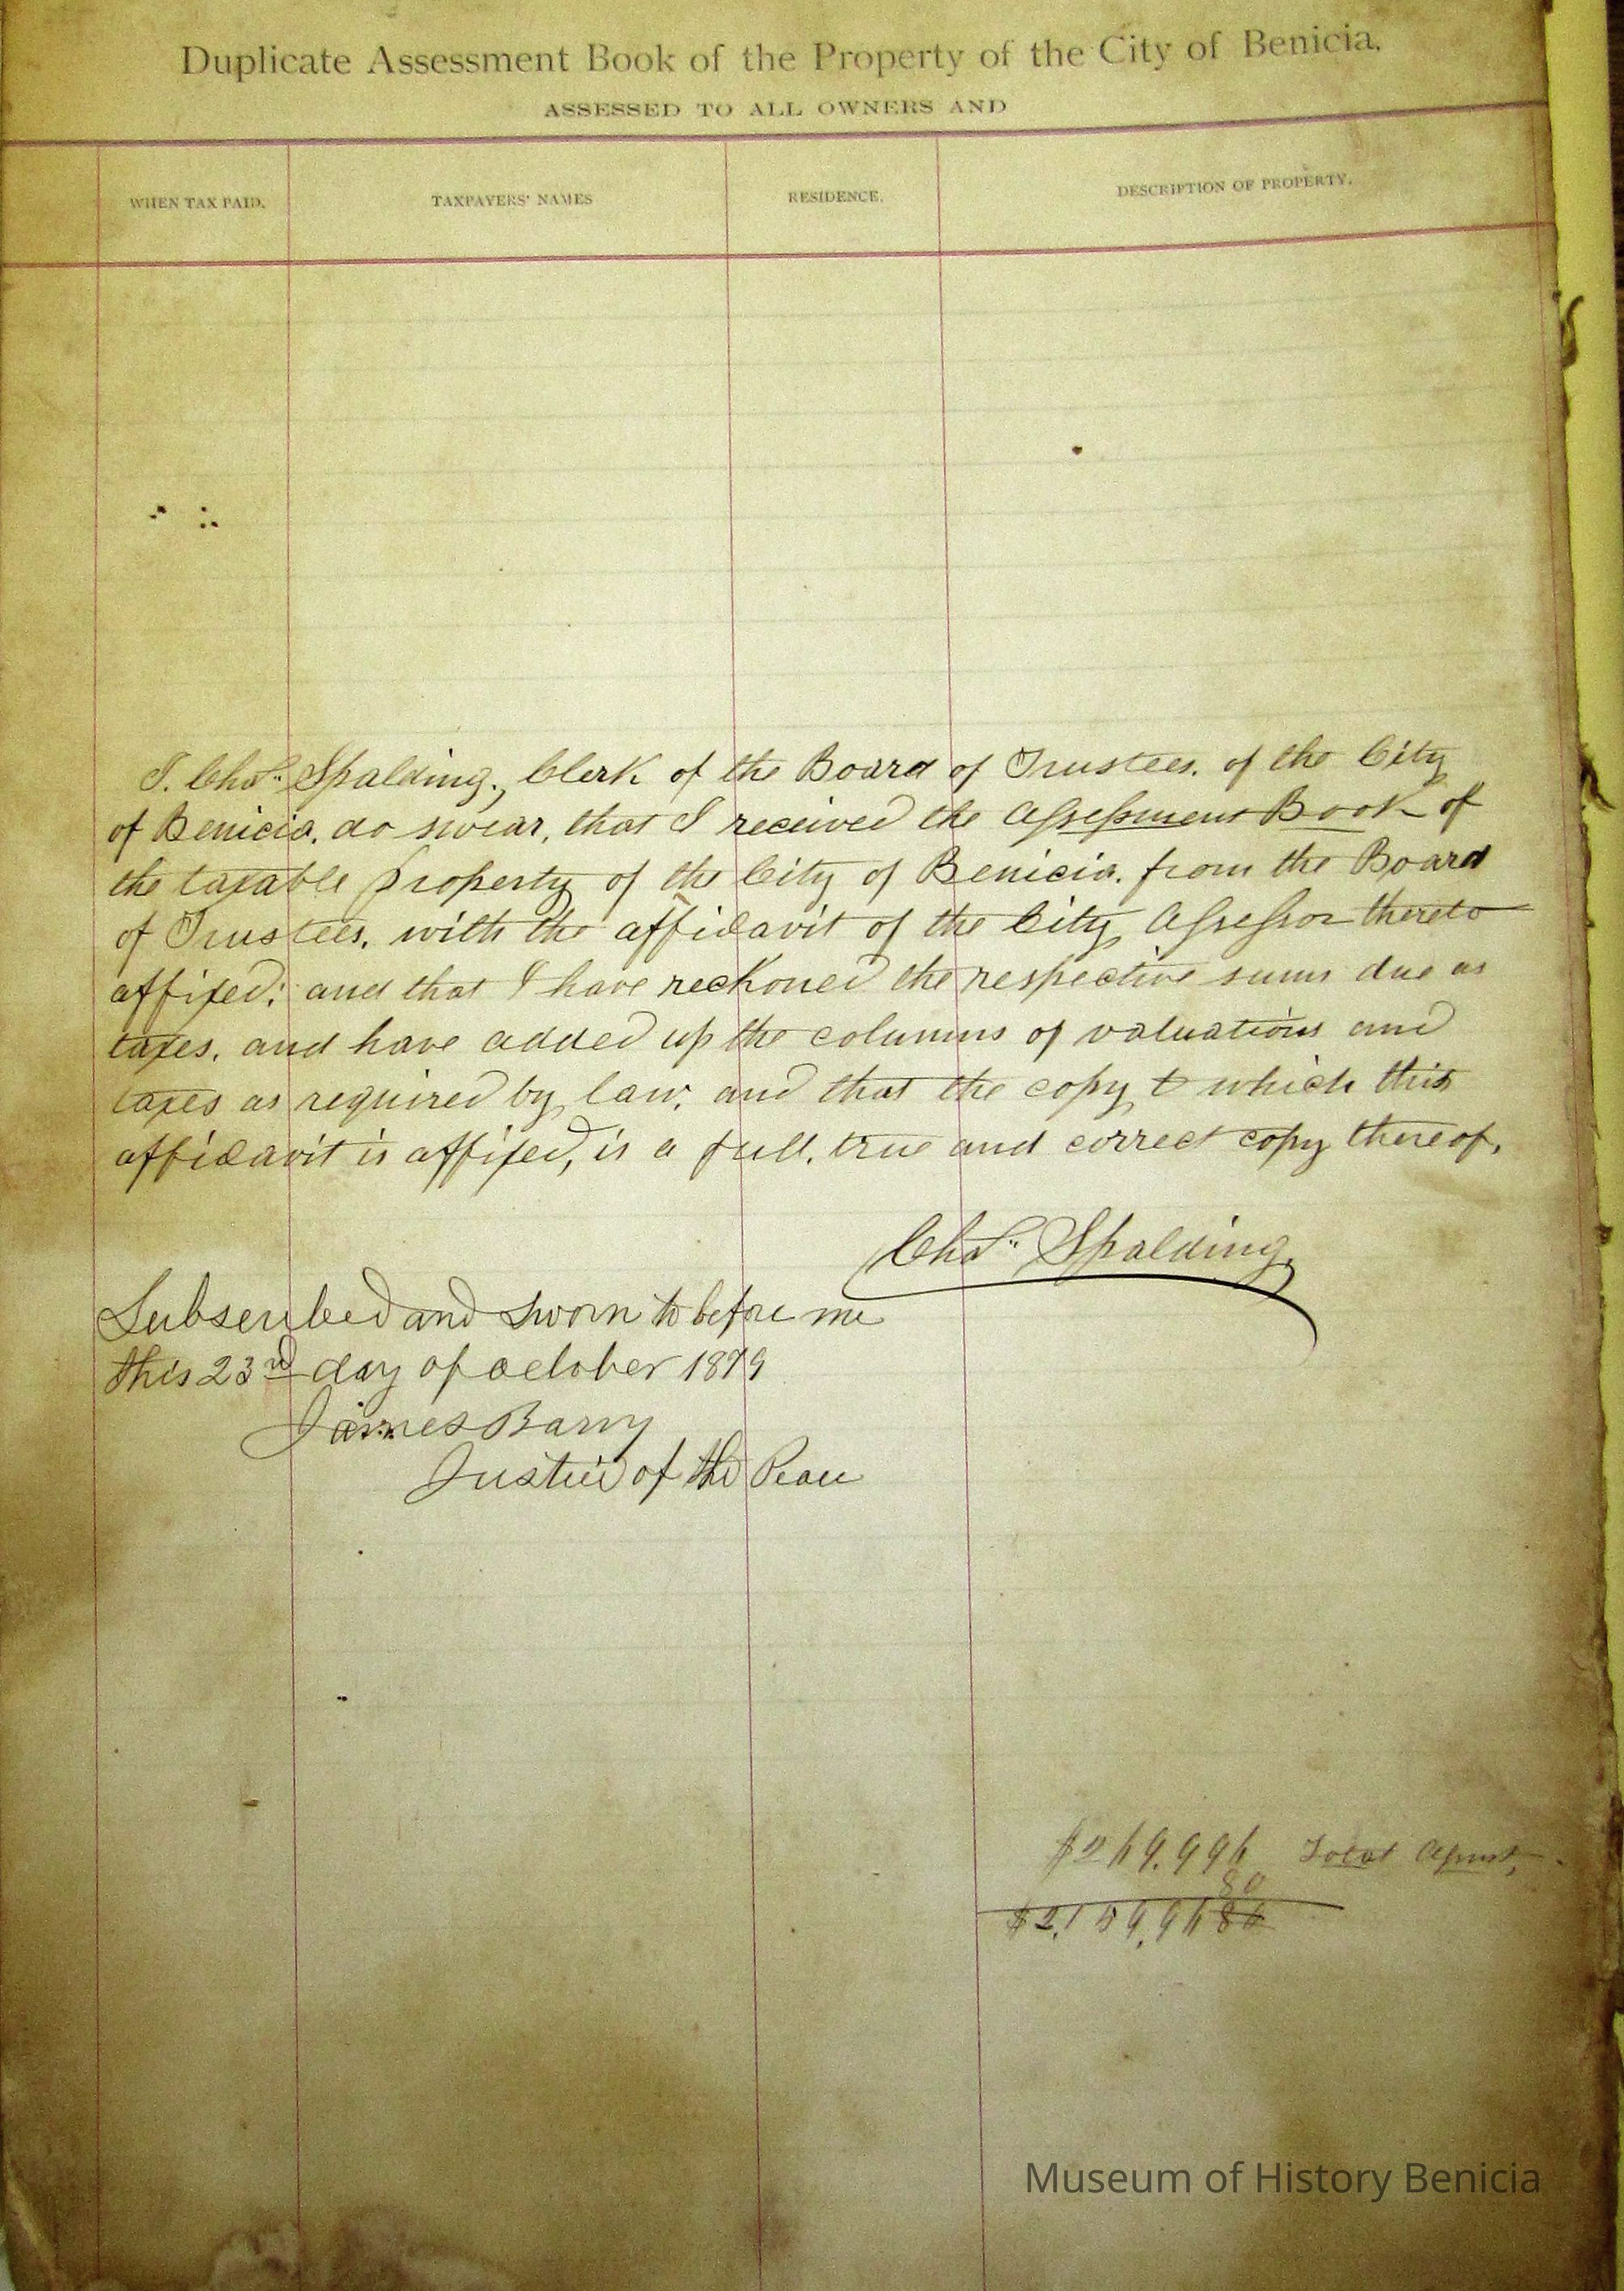 Duplicate Assessment Book of the Property of the City of Benicia.
ASSESSED TO ALL OWNERS AND
WHEN TAX PAID. TAXPAYERS' NAMES RESIDENCE. DESCRIPTION OF PROPERTY.
I. Chas. Spalding, Clerk of the Board of Trustees, of the City
of Benicia, do swear, that I received the Assessment Book of
the taxable property of the City of Benicia, from the Board
of Trustees, with the affidavit of the City Assessor thereto
affixed; and that I have reckoned the respective sums due as
taxes, and have added up the columns of valuations and
taxes as required by law; and that the copy to which this
affidavit is affixed, is a full, true and correct copy thereof.
Chas. Spalding
Subscribed and sworn to before me
this 23rd day of october 1879
James Barry
Justice of the Peace
Total
Museum of History Benicia